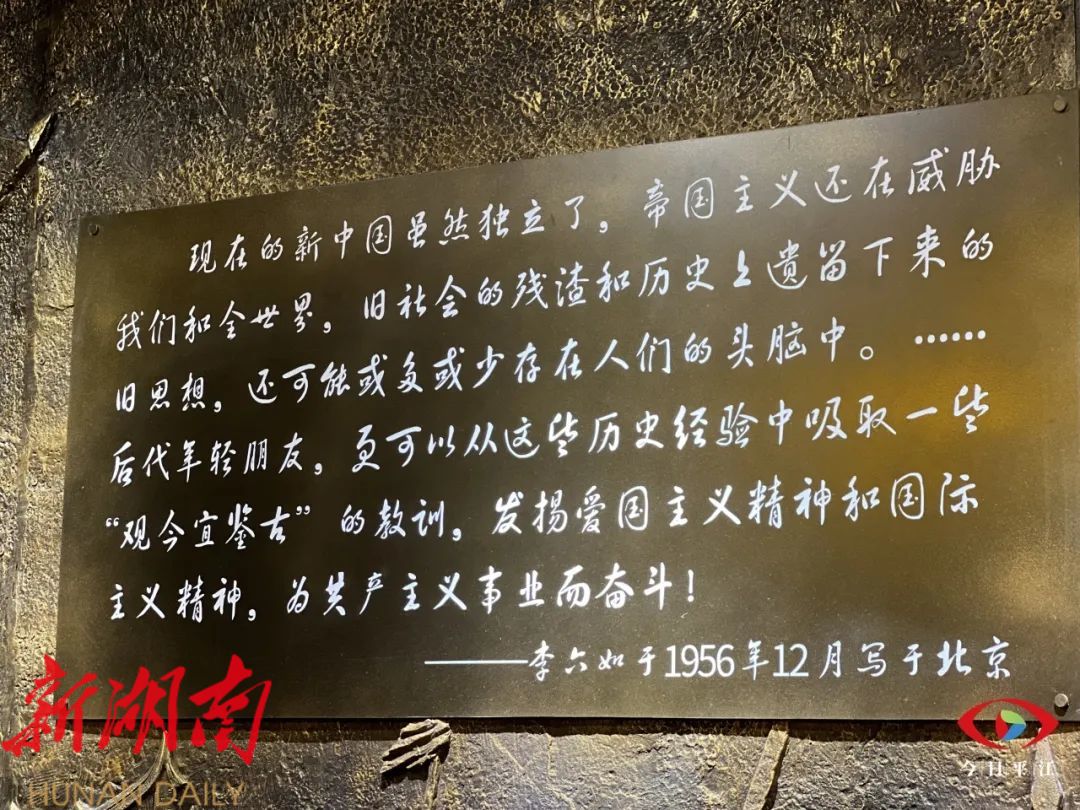 现在的新中国虽然独立了，帝国主义还在威胁
我们和全世界，旧社会的残渣和历史上遗留下来的
旧思想，还可能或多或少存在人们的头脑中。……
后代年轻朋友，更可以从这些历史经验中吸取一些
“观今宜鉴古”的教训，发揚爱国主义精神和国际
主义精神，为共产主义事业而奋斗！
——李六如于1956年12月写于北京
新湖南
HUNAN DAILY
今日平江